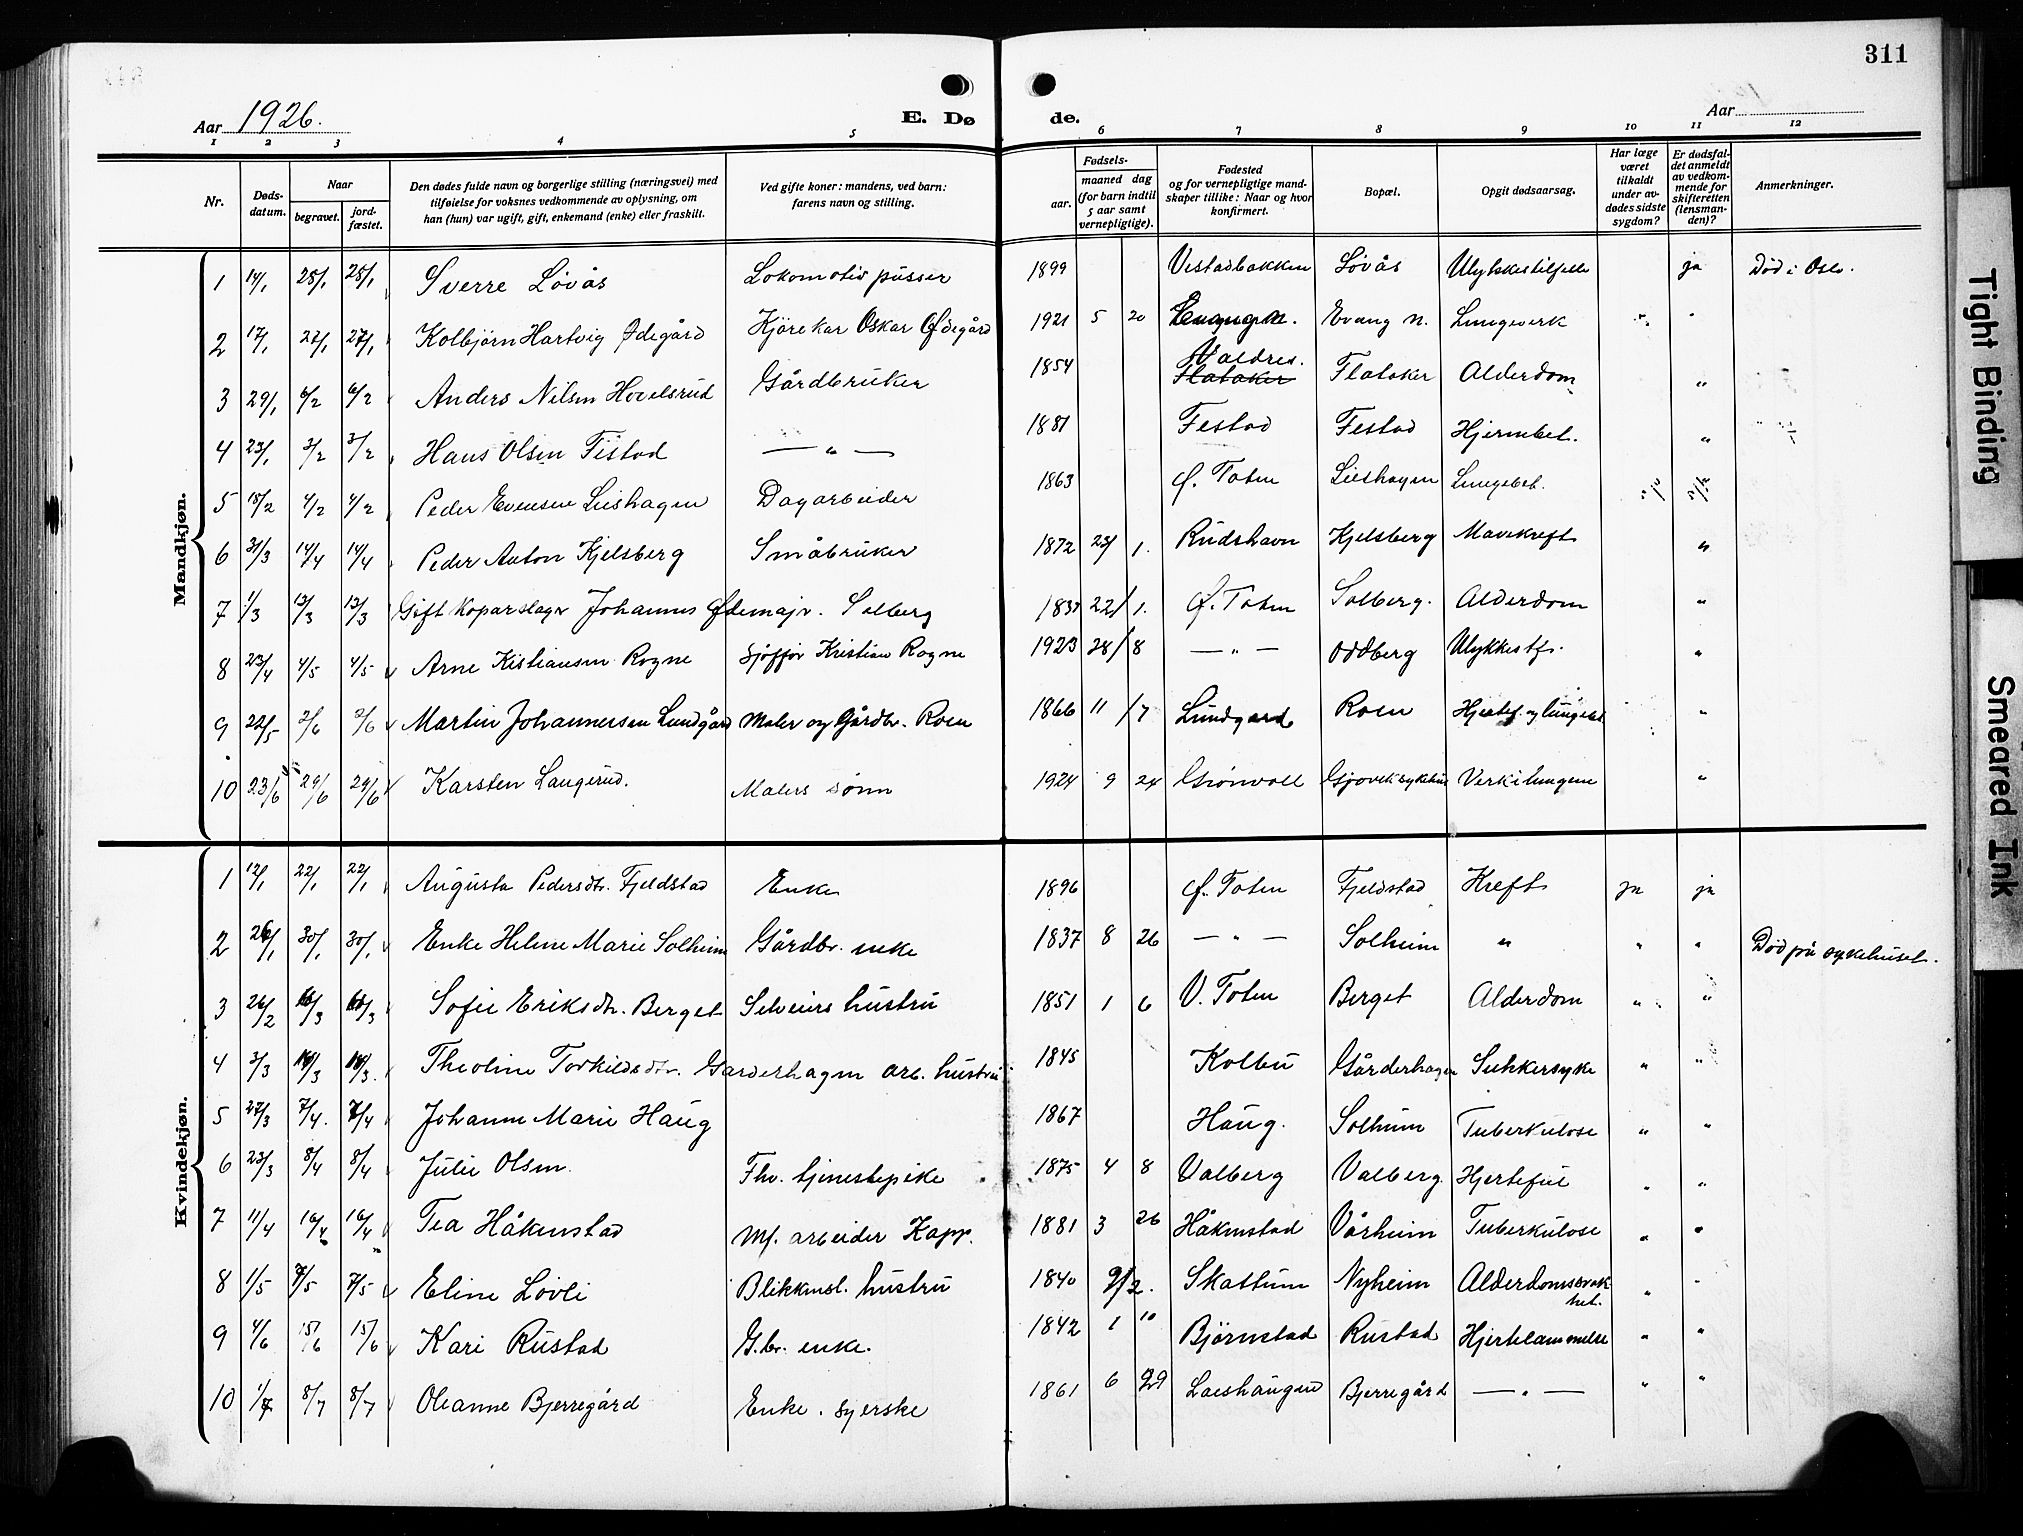 311
Aar 1926.
E. Døde.
Aar
1 2 3 4 5 6 7 8 9 10 11 12
Nr.
Dødsdatum.
Naar
begravet.
jordfæstet.
Den dødes fulde navn og borgerlige stilling (næringsvei) med tilføielse for voksnes vedkommende av oplysning, om han (hun) var ugift, gift, enkemand (enke) eller fraskilt.
Ved gifte koner: mandens, ved barn: farens navn og stilling.
Fødsels-
aar.
maaned dag
(for barn indtil 5 aar samt vernepligtige).
Fødested og for vernepligtige mandskaper tillike: Naar og hvor konfirmert.
Bopæl.
Opgit dødsaarsag.
Har læge været tilkaldt under avdødes sidste sygdom?
Er dødsfaldet anmeldt av vedkommende for skifteretten (lensmanden)?
Anmerkninger.
Mandkjøn.
1 14/1 25/1 25/1 Sverre Lövås Lokomotiv pusser 1899 Vestadbakken Lövås Ulykkestilfelle ja Död i Oslo.
2 17/1 27/1 27/1 Kolbjørn Hartvig Ødegård Kjörekar Oskar Ödegård 1921 5 20 Evang n. Evang n. Lungeverk "
3 29/1 6/2 6/2 Anders Nilsen Hovelsrud Gårdbruker 1854 Valdres. Flataker Flataker Alderdom "
4 23/1 3/2 3/2 Hans Olsen Festad — " — 1881 Festad Festad Hjernebet. "
5 18/2 4/2 4/2 Peder Evensen Lieshagen Dagarbeider 1863 Ø. Toten Lieshagen Lungebet.
6 31/3 14/4 14/4 Peder Anton Kjelsberg Småbruker 1872 23/1. Rudshavn Kjelsberg Mavekreft "
7 1/3 13/3 13/3 Gift Koparslager Johannes Ødemajr. Solberg 1837 22/1. Ø. Toten Solberg. Alderdom "
8 23/4 4/5 4/5 Arne Kistiansen Rogne Sjöfför Kristian Rogne 1923 28/8 — " — Oddberg Ulykkestf. "
9 22/5 2/6 2/6 Martin Johannessen Lundgård Maler og Gårdbr. Roen 1866 11/7 Lundgard Roen Hjertef. og lungebet "
10 23/6 29/6 29/6 Karsten Laugerud. Malers sönn 1924 9 24 Grönvoll Gjövik sykehus Verk i lungene "
Kvindekjøn.
1 12/1 22/1 22/1 Augusta Pedersdtr. Fjeldstad Enke 1896 Ø. Toten Fjeldstad Kreft ja ja
2 26/1 30/1 30/1 Enke Helene Marie Solheim Gårdbr. enke 1837 8 26 — " — Solheim " " " Död på sykehuset.
3 26/2 10/3 10/3 Sofie Eriksdtr. Berget Selveiers hustru 1851 1 6 V. Toten Berget Alderdom " "
4 3/3 18/3 18/3 Theoline Torkildsdtr. Garderhagen arb. hustru 1845 Kolbu Gårderhagen Sukkersyke " "
5 27/3 7/4. 7/4 Johanne Marie Haug 1867 Haug. Solheim Tuberkulose " "
6 23/3 8/4 8/4 Julie Olsen. Fhv. tjenestepike 1875 4 8 Valberg Valberg Hjertefeil " "
7 11/4 16/4 16/4 Tea Håkenstad Mf. arbeider Kapp. 1881 3 26 Håkenstad Vårheim Tuberkulose " "
8 1/5 7/5 7/5 Eline Lövli Blikkensl. hustru 1840 9/2. Skattum Nyheim Alderdomssvakhet. " "
9 4/6 15/6 15/6 Kari Rustad G.br. enke. 1842 1 10 Björnstad Rustad Hjertelammelse " "
10 1/7 8/7 8/7 Oleanne Bjerregård Enke. syerske 1861 6 29 Loeshaugen Bjerregård — " — " "
Tight Binding
Smeared Ink